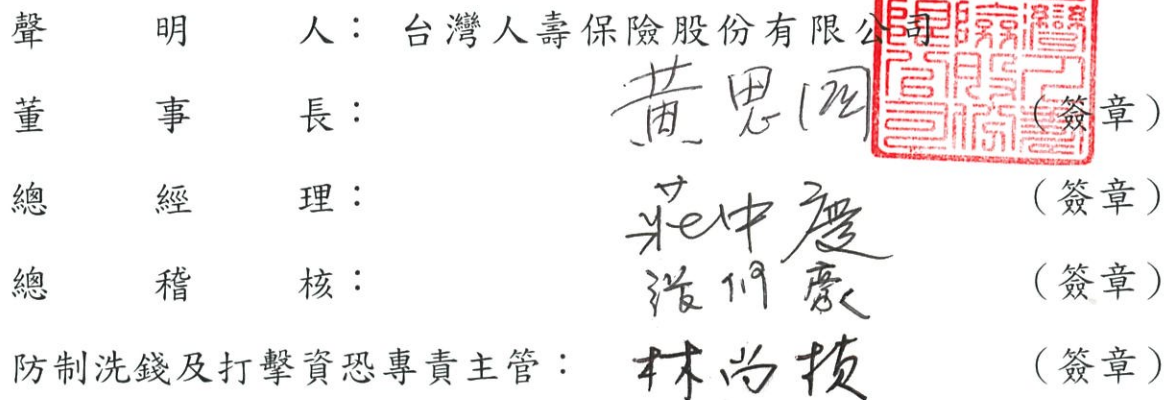 聲明人：台灣人壽保險股份有限公司
董事長：黃思國（簽章）
總經理：莊中慶（簽章）
總稽核：（簽章）
防制洗錢及打擊資恐專責主管：林尚楨（簽章）